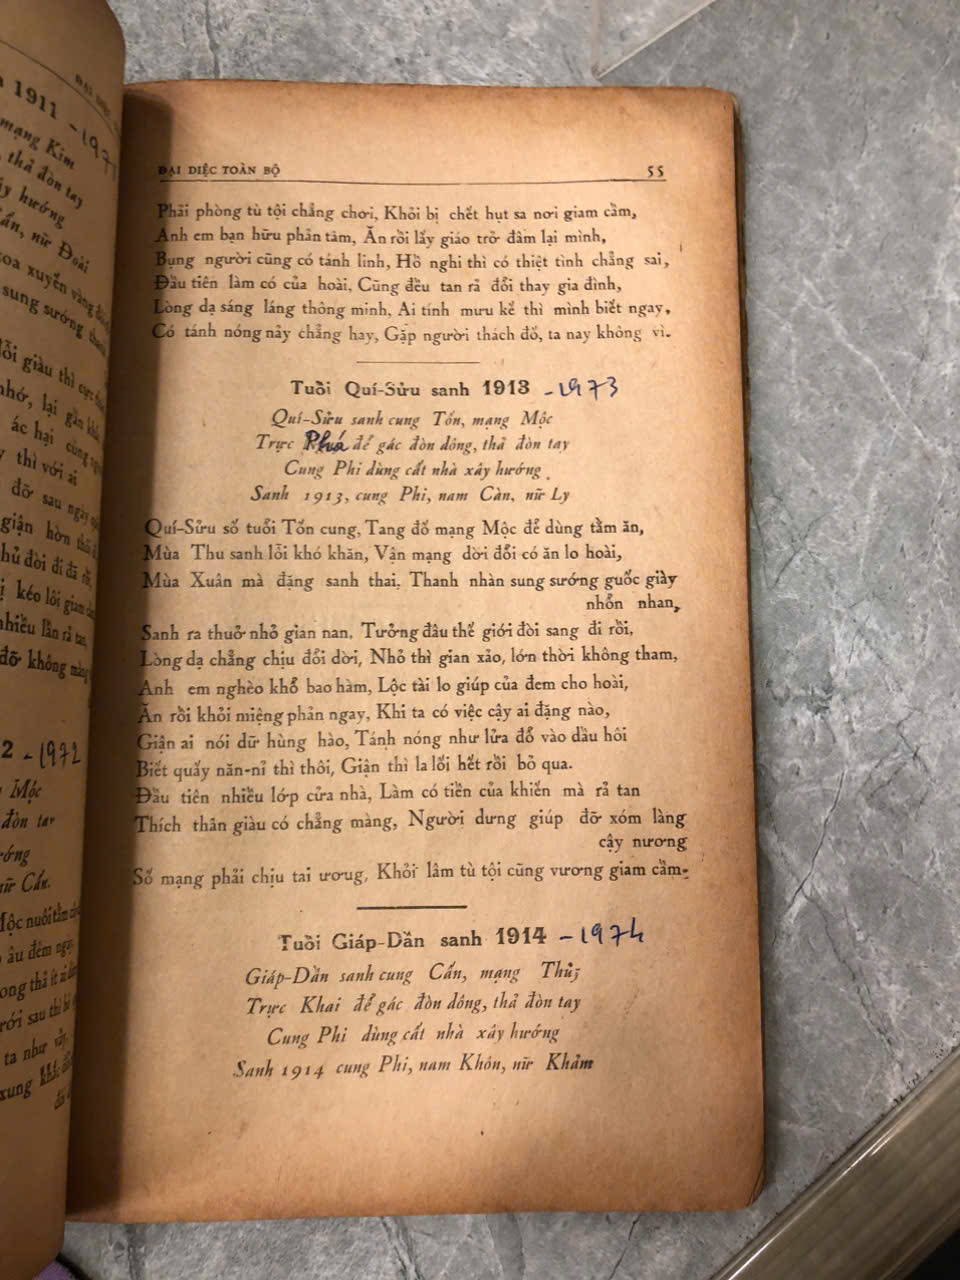 1911 - 1971
mạng Kim
thả đòn tay
hướng
nữ Đoài
xuyến vàng
sung sướng
giàu thì cực
nhớ, lại gần
ác hại
thì với ai
đỡ sau ngày
giận hờn
đòi đi đã rồi,
kéo lôi giam
nhiều lần rả tan,
đỡ không màng
2 - 1972
Mộc
đòn tay
nữ Cấn.
Mộc nuôi tằm
âu đêm ngày
thả ít ai
sau thì
ta như vầy
xung khắc
ĐẠI DIỆC TOÀN BỘ 55
Phải phòng tù tội chẳng chơi, Khỏi bị chết hụt sa nơi giam cầm,
Anh em bạn hữu phản tâm, Ăn rồi lấy giáo trở đâm lại mình,
Bụng người cũng có tánh linh, Hồ nghi thì có thiệt tình chẳng sai,
Đầu tiên làm có của hoài, Cũng đều tan rả đổi thay gia đình,
Lòng dạ sáng láng thông minh, Ai tính mưu kế thì mình biết ngay,
Có tánh nóng nảy chẳng hay, Gặp người thách đố, ta nay không vì.
Tuổi Quí-Sửu sanh 1913 - 1973
Quí-Sửu sanh cung Tốn, mạng Mộc
Trực Phá để gác đòn dông, thả đòn tay
Cung Phi dùng cất nhà xây hướng
Sanh 1913, cung Phi, nam Càn, nữ Ly
Quí-Sửu số tuổi Tốn cung, Tang đố mạng Mộc để dùng tằm ăn,
Mùa Thu sanh lỗi khó khăn, Vận mạng dời đổi có ăn lo hoài,
Mùa Xuân mà đặng sanh thai, Thanh nhàn sung sướng guốc giày
nhởn nhan,
Sanh ra thuở nhỏ gian nan, Tưởng đâu thế giới đòi sang đi rồi,
Lòng dạ chẳng chịu đổi dời, Nhỏ thì gian xảo, lớn thời không tham,
Anh em nghèo khổ bao hàm, Lộc tài lo giúp của đem cho hoài,
Ăn rồi khỏi miệng phản ngay, Khi ta có việc cậy ai đặng nào,
Giận ai nói dữ hùng hào, Tánh nóng như lửa đổ vào dầu hôi
Biết quấy năn-nỉ thì thôi, Giận thì la lối hết rồi bỏ qua.
Đầu tiên nhiều lớp cửa nhà, Làm có tiền của khiến mà rả tan
Thích thân giàu có chẳng màng, Người dưng giúp đỡ xóm làng
cậy nương
Số mạng phải chịu tai ươug, Khỏi lâm tù tội cũng vương giam cầm.
Tuổi Giáp-Dần sanh 1914 - 1974
Giáp-Dần sanh cung Cấn, mạng Thủy
Trực Khai để gác đòn dông, thả đòn tay
Cung Phi dùng cất nhà xây hướng
Sanh 1914 cung Phi, nam Khôn, nữ Khảm